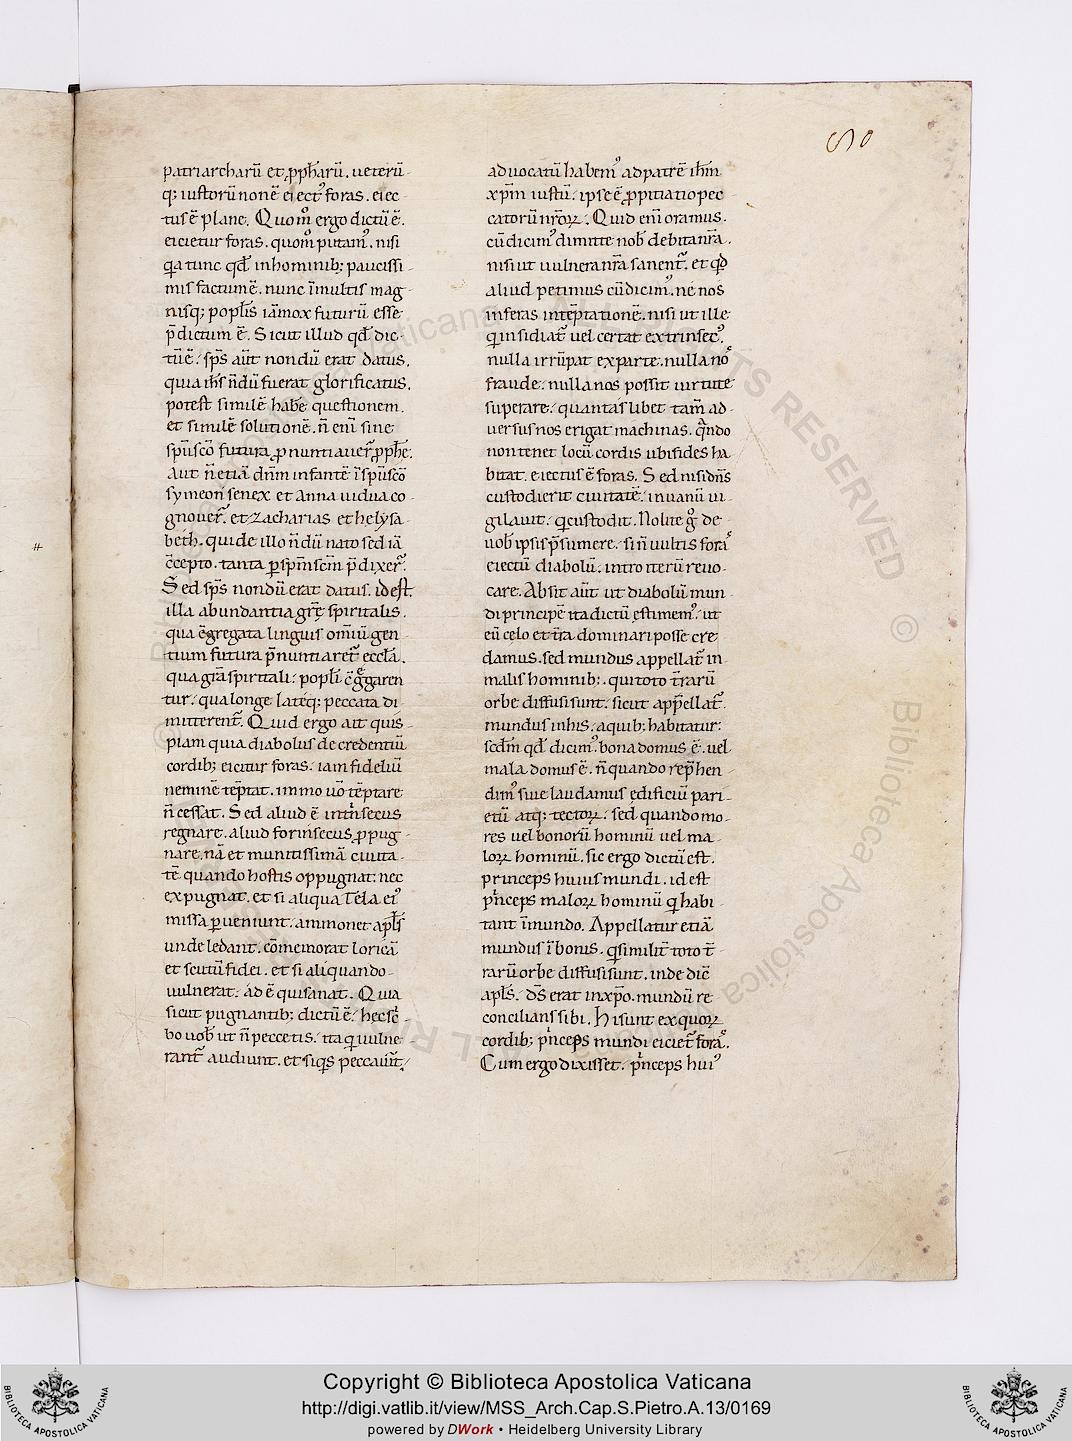 80
patriarcharū et ꝓpħarū. ueterū
q; iustorū non ē eiectꝰ foras. eiec
tus ē plane. Quom̊ ergo dictū ē.
eicietur foras. quom̊ putamꝰ. nisi
qa tunc qđ in hominib; paucissi
mis factum ē. nunc ī multis mag
nisq; popłis iā mox futurū esse
p̄dictum ē. Sicut illud qđ dic
tū ē. sp̄s aūt nondū erat datus.
quia ih̄s n̄dū fuerat glorificatus.
potest similē habe questionem.
et similē solutionē. n̄ enī sine
sp̄u sc̄o futura ꝓnuntiauer̄ ꝓpħe.
Aut n̄ etiā dn̄m infantē ī sp̄u sc̄o
symeon senex et Anna uidua co
gnouer̄. et zacharias et helysa
beth. qui de illo n̄dū nato sed iā
c̄cepto. tanta ꝑ sp̄m sc̄m p̄dixer̄.
Sed sp̄s nondū erat datus. id est.
illa abundantia grē spiritalis.
qua c̄gregata linguis om̄iū gen
tium futura p̄nuntiaret᷑ eccła.
qua gr̄a spiritali. popłi c̄g̊garen
tur. qua longe lateq; peccata di
mitterent᷑. Quid ergo ait quis
piam quia diabolus de credentiū
cordib; eicitur foras. iam fideliū
neminē tēptat. immo uo tēptare
n̄ cessat. Sed aliud ē intrinsecus
regnare. aliud forinsecus ꝓpug
nare. nā et munitissimā ciuita
tē quando hostis oppugnat. nec
expugnat. et si aliqua tela eiꝰ
missa ꝑueniunt. ammonet apłs
unde ledant. cōmemorat loricā
et scutū fidei. et si aliquando
uulnerat. adē qui sanat. Quia
sicut pugnantib; dictū ē. hec sc̄i
bo uob ut n̄ peccetis. ita qui uulne
rant᷑ audiunt. et siqis peccauit᷑.
aduocatū habemꝰ ad patrē ih̄m
xp̄m iustū. ipse ē ꝓpitiatio pec
catorū nr̄oꝝ. Quid enī oramus.
cū dicimꝰ dimitte nob debita nr̄a.
nisi ut uulnera nr̄a sanent᷑. et qd
aliud petimus cū dicimꝰ. ne nos
inferas in tēptationē. nisi ut ille
qui insidiat᷑ uel certat extrinsecꝰ.
nulla irrūpat ex parte. nulla nos
fraude. nulla nos possit uirtute
superare. quantas libet tam̄ ad
uersus nos erigat machinas. quando
non tenet locū cordis ubi fides ha
bitat. eiectus ē foras. Sed nisi dn̄s
custodierit ciuitatē. in uanū ui
gilauit. qui custodit. Nolite g̊ de
uob ipsis p̄sumere. si n̄ uultis foras
eiectū diabolū. intro iterū reuo
care. Absit aūt ut diabolū mun
di principē ita dictū estimemꝰ. ut
eū celo et tr̄a dominari posse cre
damus. sed mundus appellat᷑ in
malis hominib;. qui toto tr̄arū
orbe diffusi sunt. sicut appellat᷑
mundus in his. a quib; habitatur:
scdm̄ qđ dicimꝰ. bona domus ē. uel
mala domus ē. n̄ quando rep̄hen
dimꝰ siue laudamus edificiū pari
etū atq; tectoꝝ. sed quando mo
res uel bonorū hominū uel ma
loꝝ hominū. sic ergo dictū est.
princeps huius mundi. id est
princeps maloꝝ hominū qui habi
tant ī mundo. Appellatur etiā
mundus ī bonis. qui similit᷑ toto t̄
rarū orbe diffusi sunt. inde dic̄
apłs. ds̄ erat in xp̄o. mundū re
concilians sibi. Hi sunt ex quoꝝ
cordib; princeps mundi eiciet᷑ foras.
Cum ergo dixisset. princeps huiꝰ
Copyright © Biblioteca Apostolica Vaticana
http://digi.vatlib.it/view/MSS_Arch.Cap.S.Pietro.A.13/0169
powered by DWork • Heidelberg University Library